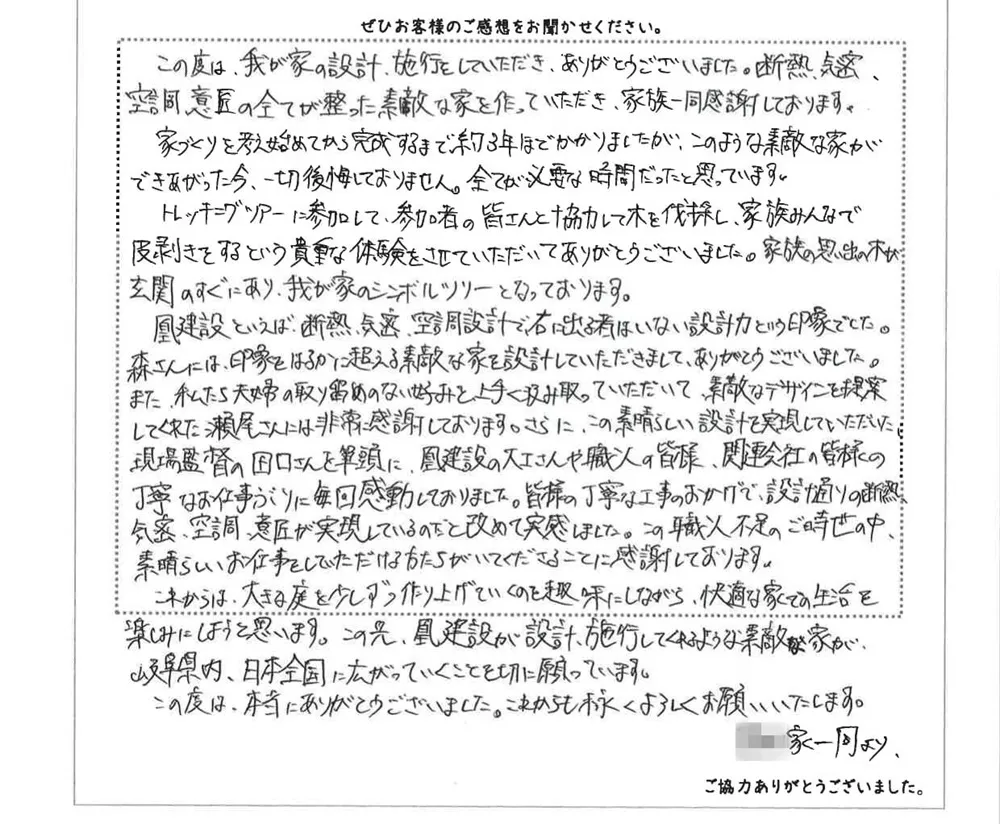 ぜひお客様のご感想をお聞かせください。
この度は、我が家の設計、施行をしていただき、ありがとうございました。断熱、気密、
空調、意匠の全てが整った素敵な家を作っていただき、家族一同感謝しております。
家づくりを考え始めてから完成するまで約3年ほどかかりましたが、このような素敵な家が
できあがった今、一切後悔しておりません。全てが必要な時間だったと思っています。
トレッキングツアーに参加して、参加者の皆さんと協力して木を伐採し、家族みんなで
皮剥きをするという貴重な体験をさせていただいてありがとうございました。家族の思い出の木が
玄関のすぐにあり、我が家のシンボルツリーとなっております。
凰建設といえば、断熱、気密、空調設計で右に出る者はいない設計力という印象でした。
森さんには、印象をはるかに超える素敵な家を設計していただきまして、ありがとうございました。
また、私たち夫婦の取り留めのない好みを上手く汲み取っていただいて、素敵なデザインを提案
してくれた瀬尾さんには非常に感謝しております。さらに、この素晴らしい設計を実現していただいた
現場監督の田口さんを筆頭に、凰建設の大工さんや職人の皆様、関連会社の皆様の
丁寧なお仕事づくりに毎回感動しておりました。皆様の丁寧な工事のおかげで、設計通りの断熱、
気密、空調、意匠が実現しているのだと改めて実感しました。この職人不足のご時世の中、
素晴らしいお仕事をしていただける方たちがいてくださることに感謝しております。
これからは、大きな庭を少しずつ作り上げていくのを趣味にしながら、快適な家での生活を
楽しみにしようと思います。この先、凰建設が設計、施行してくれるような素敵な家が、
岐阜県内、日本全国に広がっていくことを切に願っています。
この度は、本当にありがとうございました。これからも末永くよろしくお願いいたします。
家一同より、
ご協力ありがとうございました。